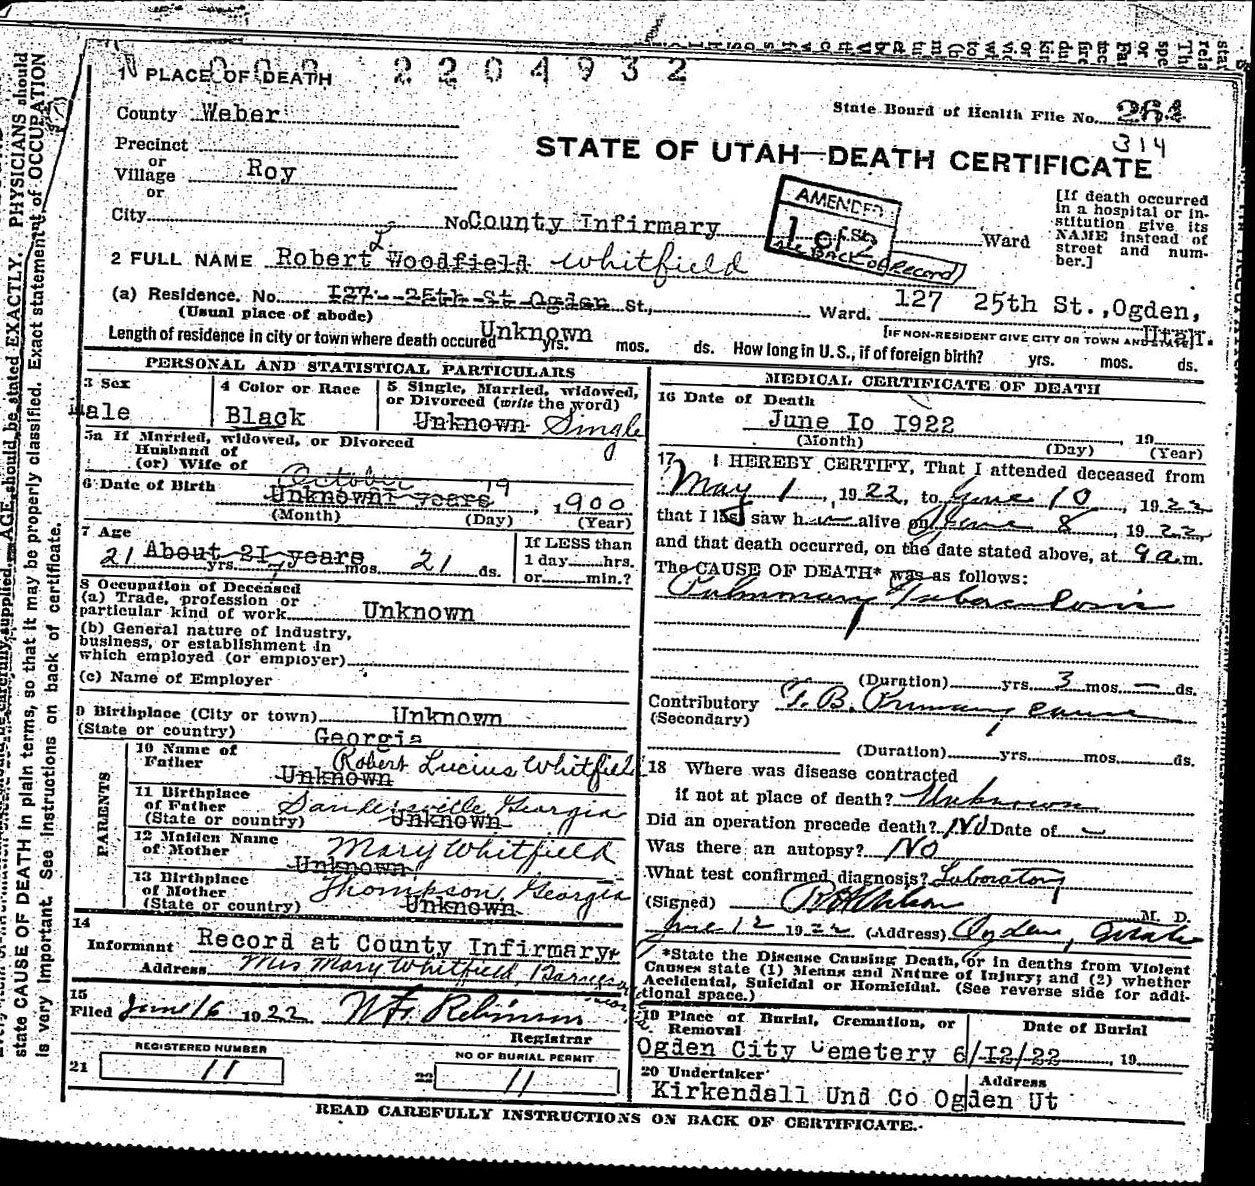 002 2204932
1 PLACE OF DEATH
County Weber
State Board of Health File No. 264
314
Precinct
or
Village Roy
or
STATE OF UTAH—DEATH CERTIFICATE
AMENDED
1 of 2
See BACK of Record)
[If death occurred
in a hospital or in-
stitution give its
NAME instead of
street and num-
ber.]
City No. County Infirmary Ward
2 FULL NAME Robert L Woodfield Whitfield
(a) Residence. No. 127 25th St Ogden St., Ward. 127 25th St., Ogden,
(Usual place of abode) Utah.
[IF NON-RESIDENT GIVE CITY OR TOWN AND STATE]
Length of residence in city or town where death occured Unknown yrs. mos. ds. How long in U. S., if of foreign birth? yrs. mos. ds.
PERSONAL AND STATISTICAL PARTICULARS
3 Sex
Male
4 Color or Race
Black
5 Single, Married, widowed,
or Divorced (write the word)
Unknown Single
5a If Married, widowed, or Divorced
Husband of
(or) Wife of
6 Date of Birth October 19 1900
Unknown years
(Month) (Day) (Year)
7 Age
21 About 21 years
yrs. 7 mos. 21 ds.
If LESS than
1 day hrs.
or min.?
8 Occupation of Deceased
(a) Trade, profession or
particular kind of work Unknown
(b) General nature of industry,
business, or establishment in
which employed (or employer)
(c) Name of Employer
9 Birthplace (City or town) Unknown
(State or country) Georgia
PARENTS
10 Name of
Father Robert Lucius Whitfield
Unknown
11 Birthplace
of Father Sandersville Georgia
(State or country) Unknown
12 Maiden Name
of Mother Mary Whitfield
Unknown
13 Birthplace
of Mother Thompson, Georgia
(State or country) Unknown
14
Informant Record at County Infirmary
Address Mrs Mary Whitfield,
15
Filed June 16 1922 Registrar
REGISTERED NUMBER
21 11
NO OF BURIAL PERMIT
22 11
MEDICAL CERTIFICATE OF DEATH
16 Date of Death
June I0 I922, 19
(Month) (Day) (Year)
17 I HEREBY CERTIFY, That I attended deceased from
May 1, 1922, to June 10, 1922
that I last saw him alive on June 8, 1922
and that death occurred, on the date stated above, at 9 a.m.
The CAUSE OF DEATH* was as follows:
Pulmonary Tuberculosis
(Duration) yrs. 3 mos. — ds.
Contributory T. B. Primary cause
(Secondary)
(Duration) yrs. mos. ds.
18 Where was disease contracted
if not at place of death? Unknown
Did an operation precede death? No Date of —
Was there an autopsy? No
What test confirmed diagnosis? Laboratory
(Signed) M. D.
June 12 1922 (Address) Ogden, Utah
*State the Disease Causing Death, or in deaths from Violent
Causes state (1) Means and Nature of Injury; and (2) whether
Accidental, Suicidal or Homicidal. (See reverse side for addi-
tional space.)
19 Place of Burial, Cremation, or
Removal
Date of Burial
Ogden City Cemetery 6/I2/22, 19
20 Undertaker Address
Kirkendall Und Co Ogden Ut
READ CAREFULLY INSTRUCTIONS ON BACK OF CERTIFICATE.
carefully supplied. AGE should be stated EXACTLY. PHYSICIANS should
state CAUSE OF DEATH in plain terms, so that it may be properly classified. Exact statement of OCCUPATION
is very important. See instructions on back of certificate.